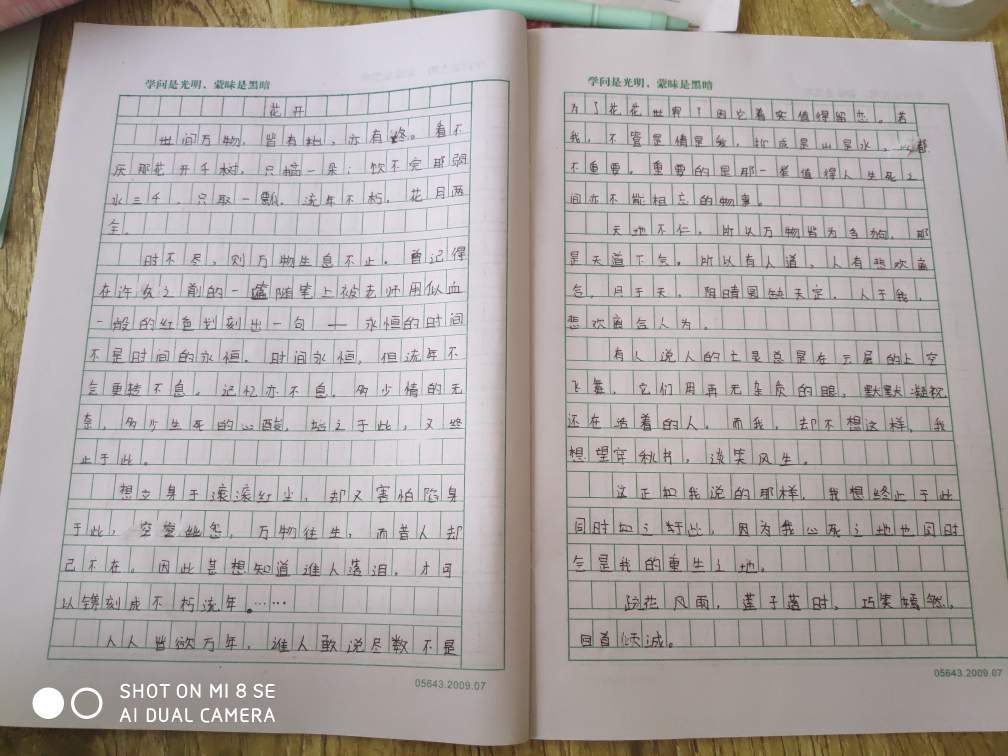 学问是光明、蒙昧是黑暗
花开
世间万物，皆有始，亦有终。看不
厌那花开千树，只摘一朵；饮不完那弱
水三千，只取一瓢。流年不朽，花月两
全。
时不尽，则万物生息不止。曾记得
在许久之前的一篇随笔上被老师用似血
一般的红色划刻出一句——永恒的时间
不是时间的永恒。时间永恒，但流年不
会更转不息。记忆亦不息，多少情的无
奈，多少生死的心酸，始之于此，又终
止于此。
想立身于滚滚红尘，却又害怕陷身
于此，空望幽怨，万物往生，而昔人却
已不在。因此甚想知道谁人落泪，才可
以镌刻成不朽流年。……
人人皆欲万年，谁人敢说尽数不是
05643.2009.07
学问是光明、蒙昧是黑暗
为了花花世界？因它着实值得留恋。若
我，不管是情是爱，抑或是山是水，心都
不重要，重要的是那一举值得人生死之
间亦不能相忘的物事。
天地不仁，所以万物皆为刍狗，那
是天道下气。所以有人道，人有悲欢离
合，月于天，阴晴圆缺天定，人于我，
悲欢离合人为。
有人说人的土灵总是在云层的上空
飞舞，它们用再无杂质的眼，默默凝视
还在活着的人。而我，却不想这样，我
想望穿秋月，谈笑风生。
这正如我说的那样，我想终止于此
同时如之于此，因为我心死之地也同时
会是我的重生之地。
花风雨，莲子落时，巧笑嫣然，
回首倾诚。
05643.2009.07
SHOT ON MI 8 SE
AI DUAL CAMERA